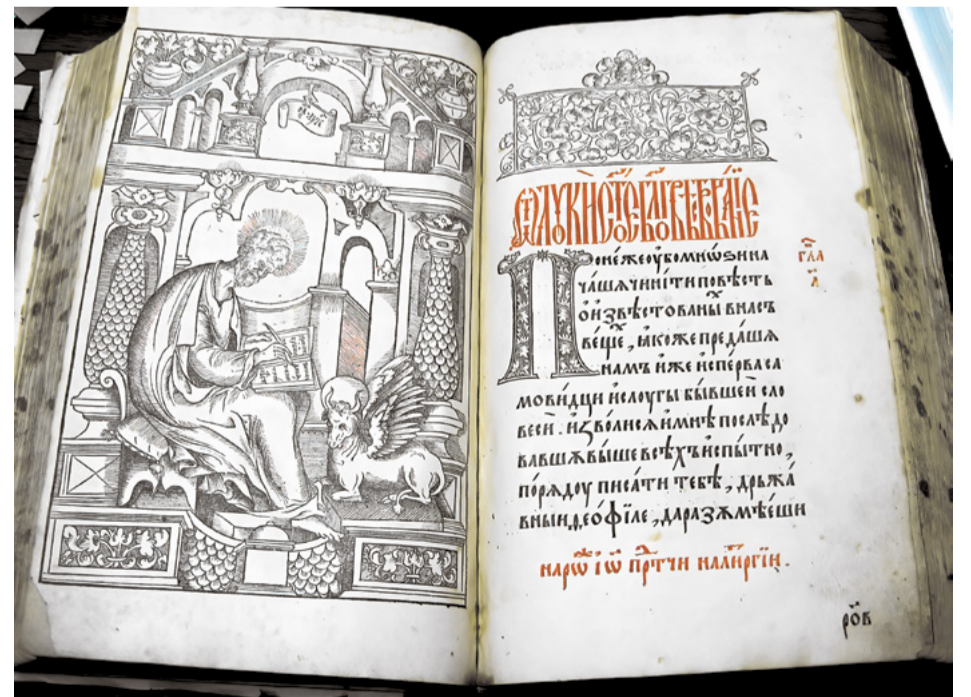 Ѿ лꙋки ст҃ое бл҃говѣствованїе
Понеже ᲂу҆бо мнѡѕи на
чашѧ чинити повѣсть
о и҆звѣстованы́ въ насъ
ве́ще, ꙗ҆́коже преда́шѧ
намъ и҆́же и҆спе́рва са
мови́дци и҆ слоугы бы́вшеи сло
весѝ . и҆зво́лисѧ и҆ мнѣ̀ послѣ́до
вавшꙋ вы́ше всѣ́хъ и҆спы́тно,
по́рѧдоу писа́ти тебѣ̀, држа́
вныи ѳео́фїле, да разꙋмѣ́еши
на рѡⷤ і҆ѡ҃ прⷣтчи на лиⷮргїи.
гла
а҃
ро҃в